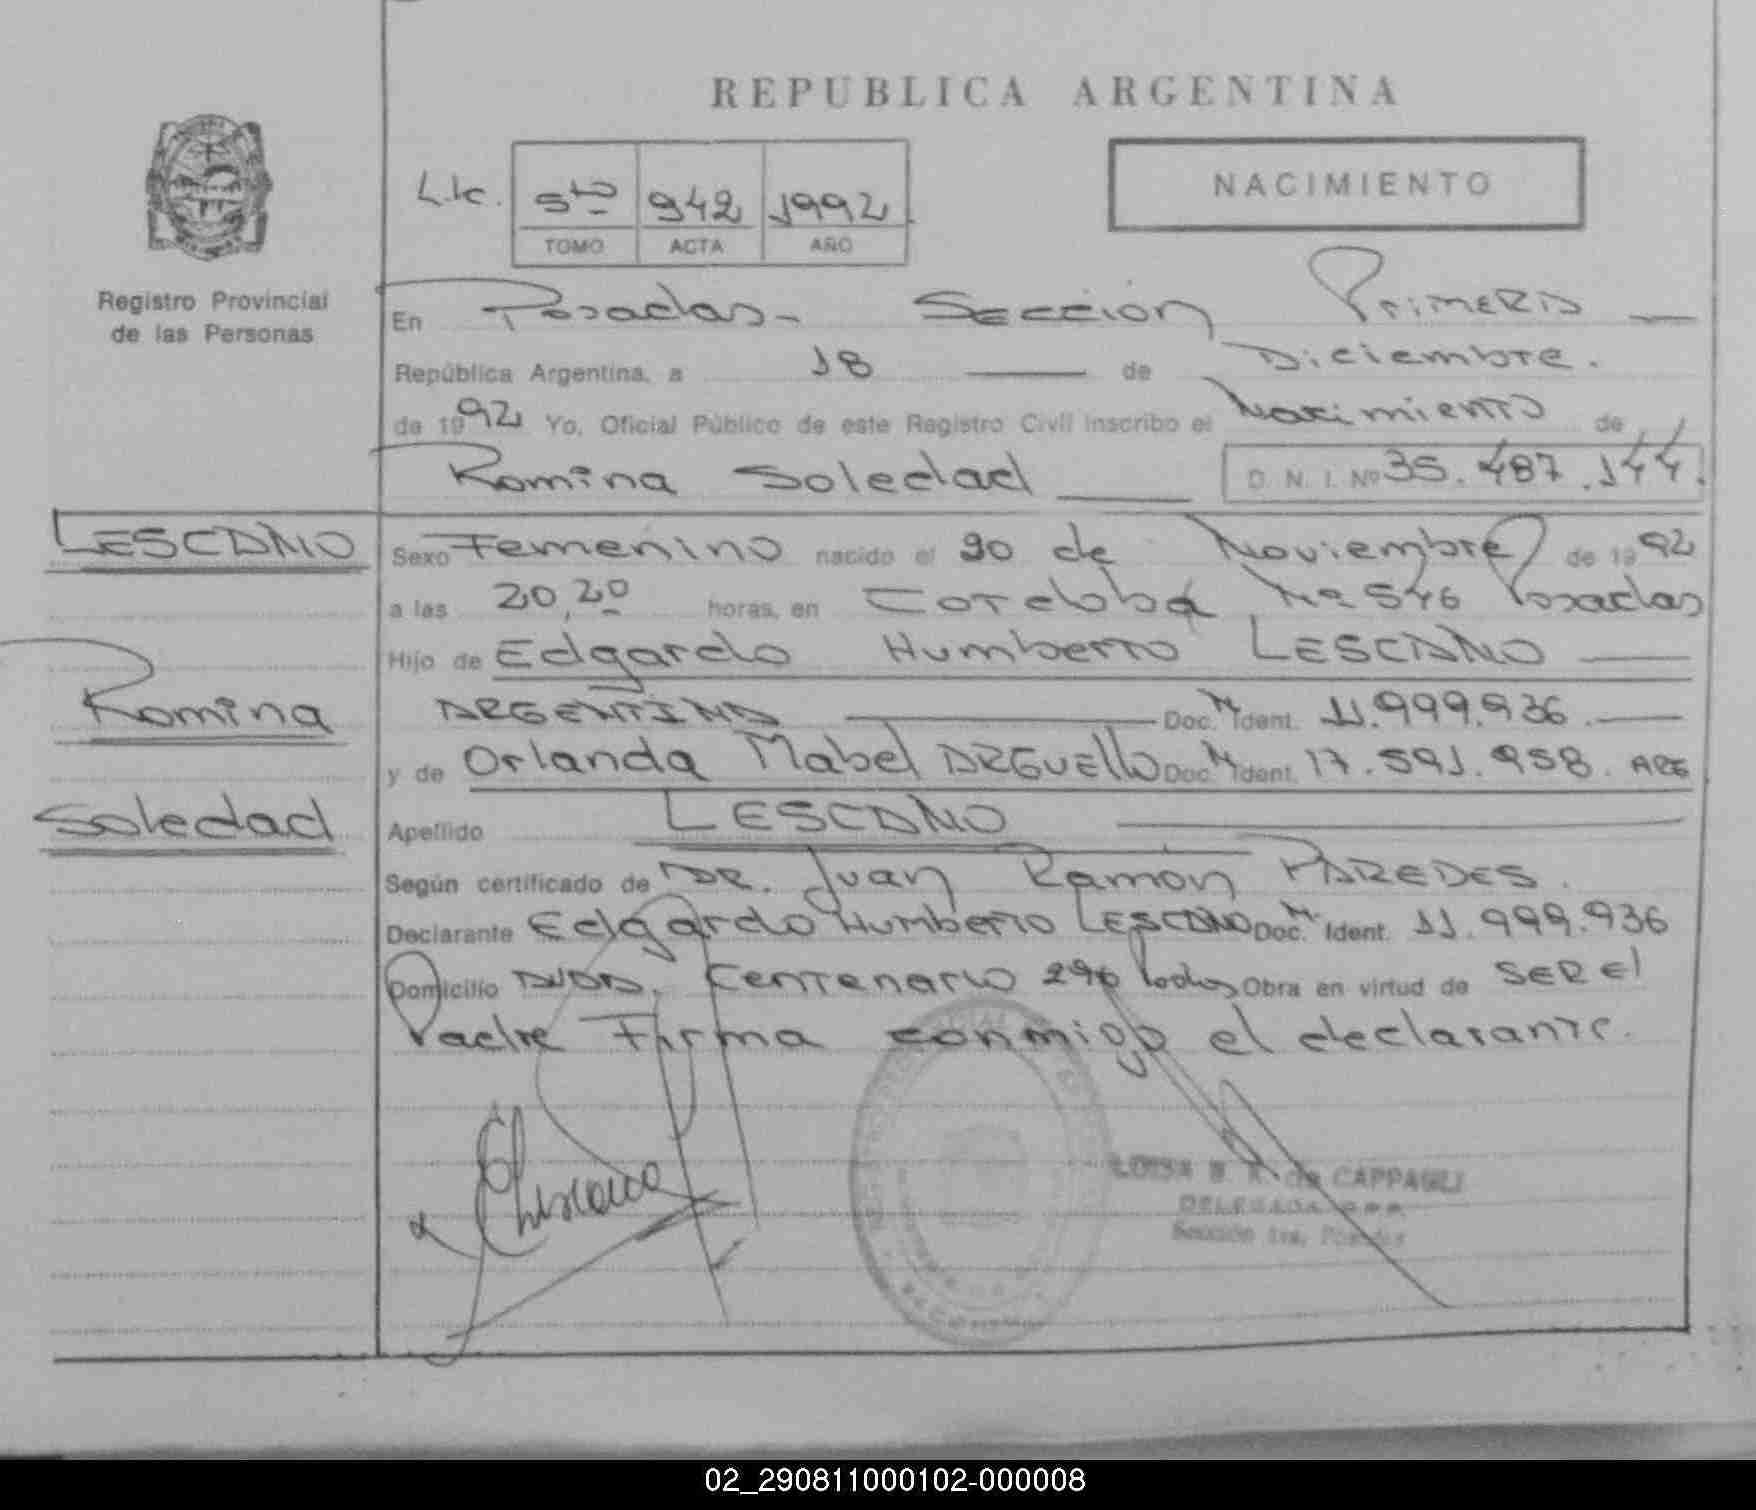 REPUBLICA ARGENTINA
NACIMIENTO
L.ic. 5to 942 1992
TOMO ACTA AÑO
Registro Provincial
de las Personas
En Posadas - Sección Primera
República Argentina, a 18 de Diciembre.
de 1992 Yo, Oficial Público de este Registro Civil inscribo el Nacimiento de
Romina Soledad D. N. I. Nº 35.487.144.
LESCANO
Romina
Soledad
Sexo Femenino nacido el 30 de Noviembre de 1992
a las 20,20 horas, en Cordoba Nº 546 Posadas
Hijo de Edgardo Humberto LESCANO
ARGENTINA Doc. M Ident. 11.999.936.
y de Orlanda Mabel ARGUEllO Doc. M Ident. 17.591.958. ARG
Apellido LESCANO
Según certificado de DR. Juan Ramón PAREDES.
Declarante Edgardo Humberto LESCANO Doc. M. Ident. 11.999.936
Domicilio AVDA. Centenario 296 Podas Obra en virtud de SER El
Padre Firma conmigo el declarante.
LUISA B. R. de CAPPAGLI
DELEGADA R.P.P.
Sección 1ra. Posadas
02_290811000102-000008